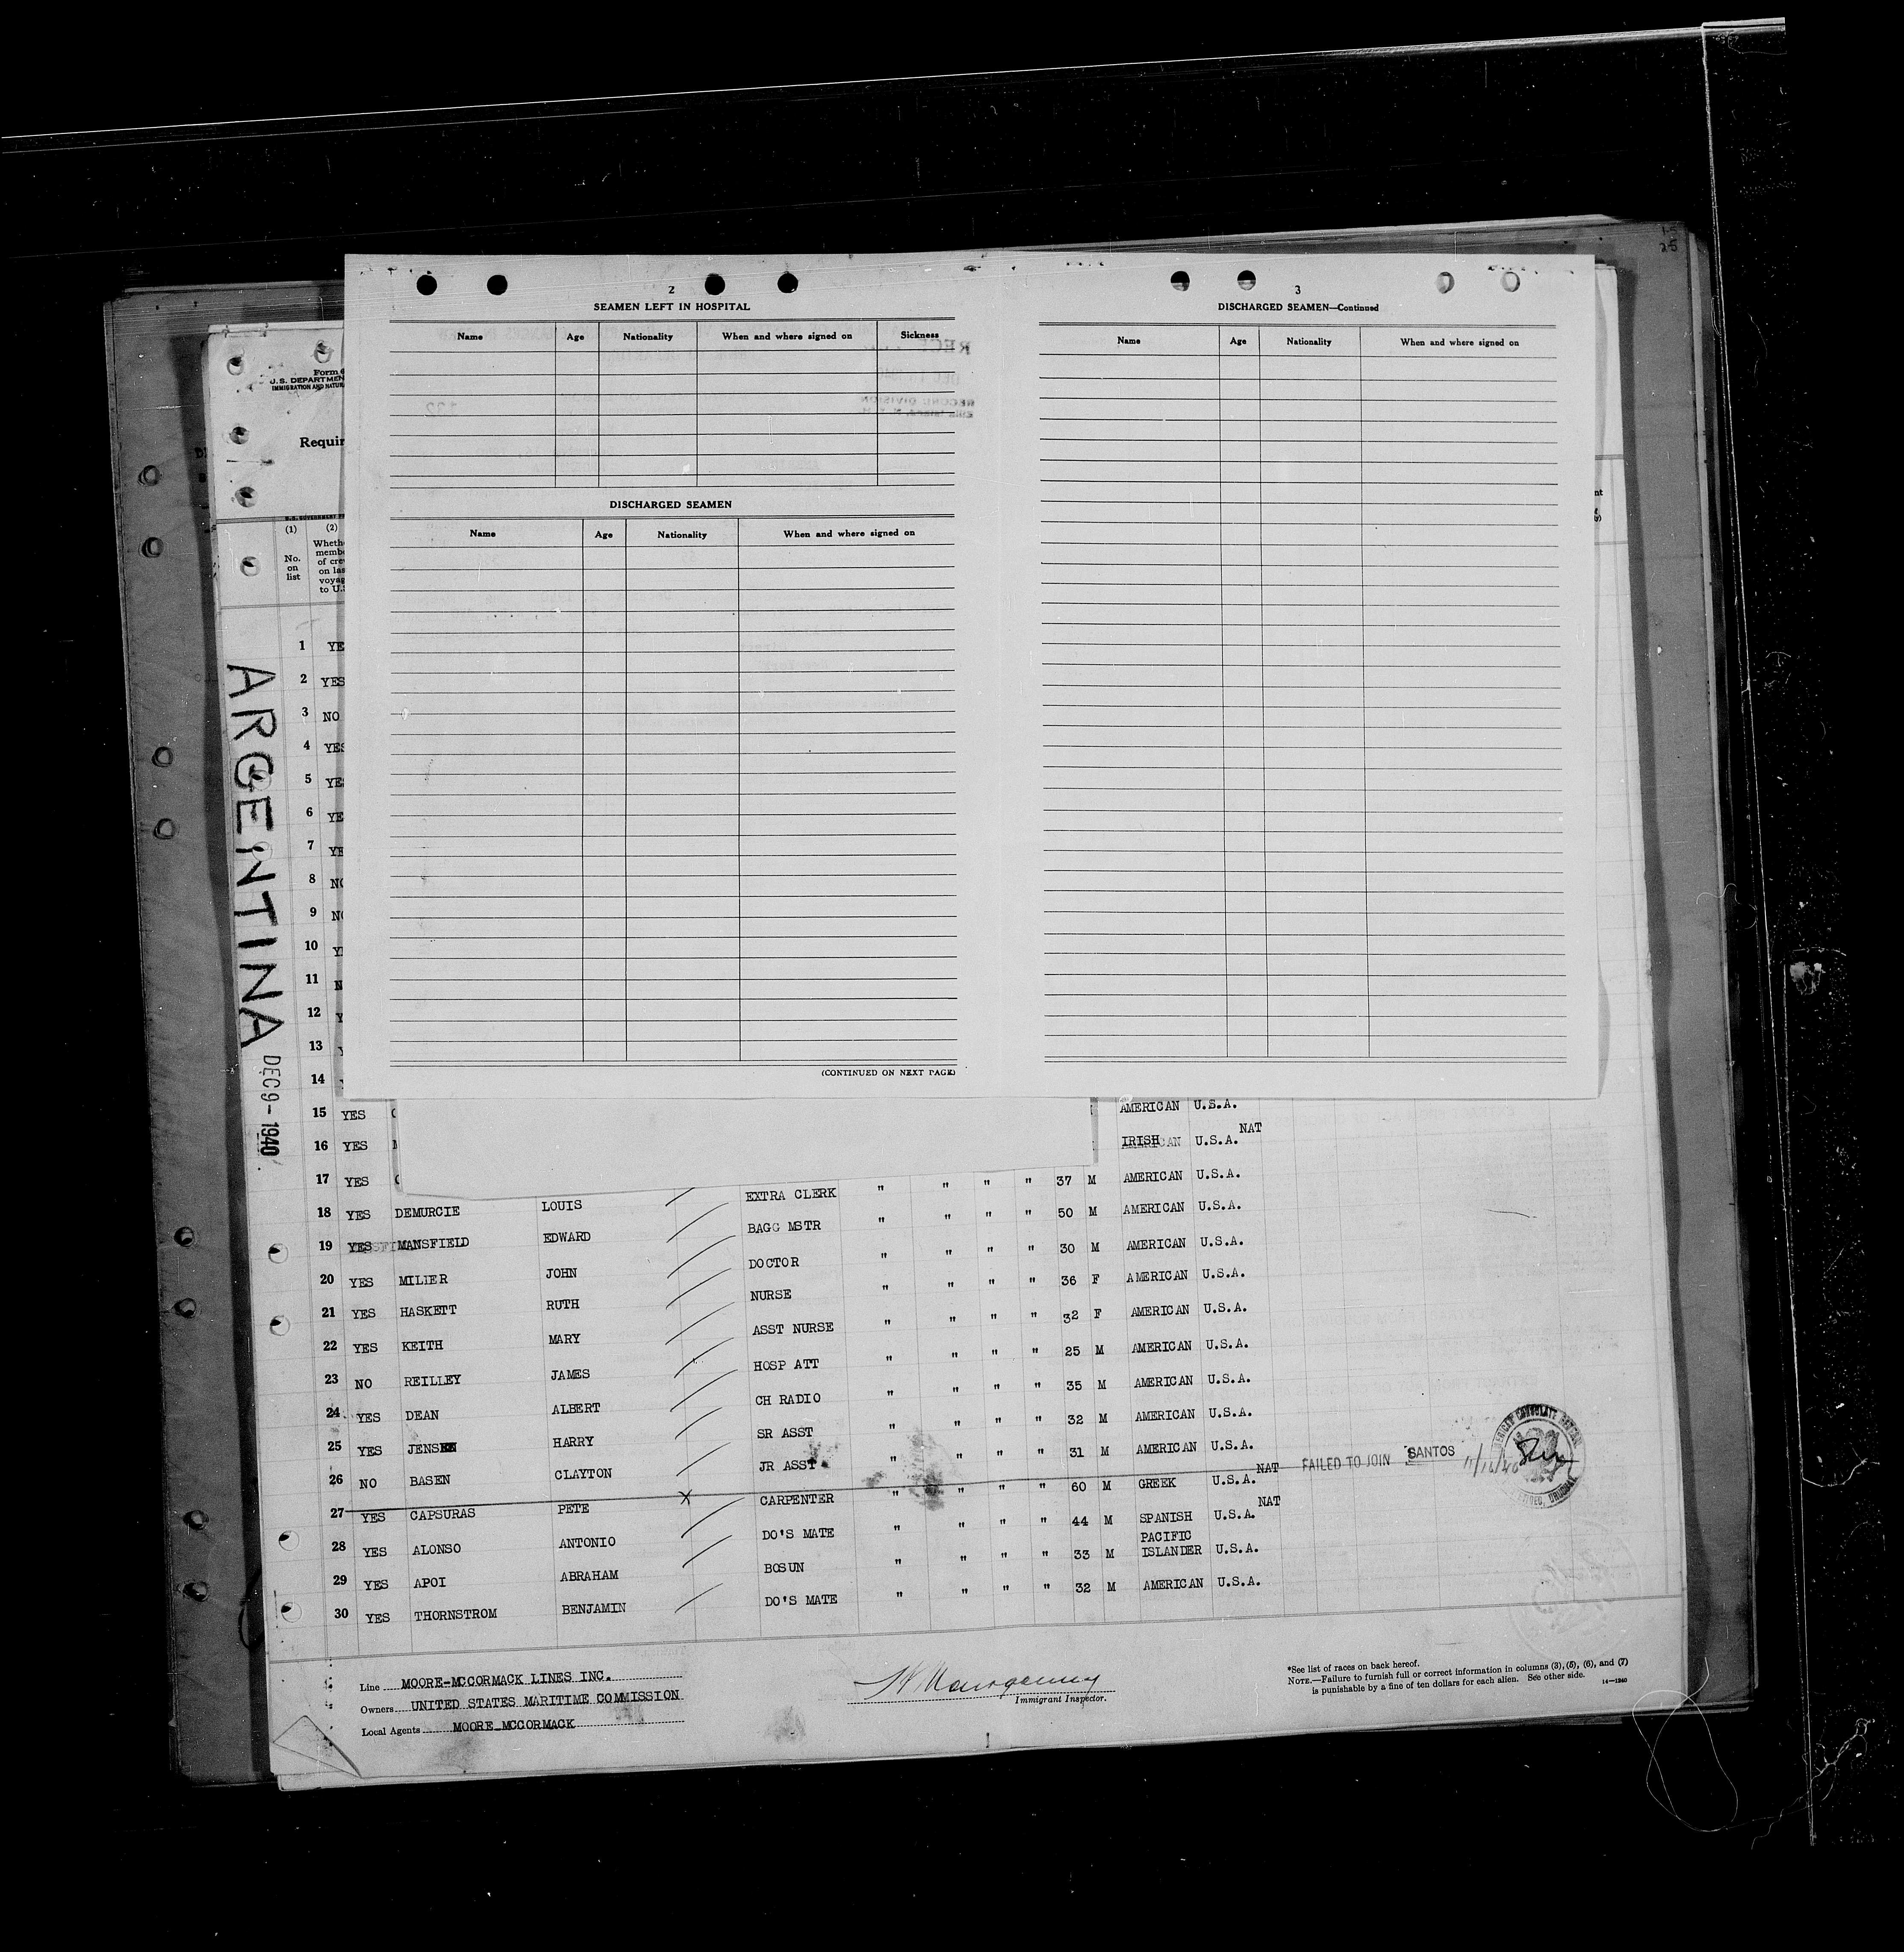 2
SEAMEN LEFT IN HOSPITAL
Name Age Nationality When and where signed on Sickness
DISCHARGED SEAMEN
Name Age Nationality When and where signed on
(CONTINUED ON NEXT PAGE)
3
DISCHARGED SEAMEN—Continued
Name Age Nationality When and where signed on
Form
U.S. DEPARTMEN
IMMIGRATION AND NATUR
Requir
(1) (2)
No. on list
Wheth
memb
of cre
on las
voyag
to U.S
ARGENTINA DEC 9 - 1940
1 YE
2 YES
3 NO
4 YES
5 YES
6 YE
7 YE
8 NO
9 NO
10 Y
11 N
12 Y
13 Y
14 Y
15 YES
16 YES AMERICAN U.S.A.
17 YES IRISH U.S.A. NAT
18 YES DEMURCIE LOUIS EXTRA CLERK " " " " 37 M AMERICAN U.S.A.
19 YES MANSFIELD EDWARD BAGG MSTR " " " " 50 M AMERICAN U.S.A.
20 YES MILLER JOHN DOCTOR " " " " 30 M AMERICAN U.S.A.
21 YES HASKETT RUTH NURSE " " " " 36 F AMERICAN U.S.A.
22 YES KEITH MARY ASST NURSE " " " " 32 F AMERICAN U.S.A.
23 NO REILLEY JAMES HOSP ATT " " " " 25 M AMERICAN U.S.A.
24 YES DEAN ALBERT CH RADIO " " " " 35 M AMERICAN U.S.A.
25 YES JENSEN HARRY SR ASST " " " " 32 M AMERICAN U.S.A.
26 NO BASEN CLAYTON JR ASST " " " " 31 M AMERICAN U.S.A.
27 YES CAPSURAS PETE X CARPENTER " " " " 60 M GREEK U.S.A. NAT FAILED TO JOIN SANTOS 11/16/40
28 YES ALONSO ANTONIO DO'S MATE " " " " 44 M SPANISH U.S.A. NAT
29 YES APOI ABRAHAM BOSUN " " " " 33 M PACIFIC ISLANDER U.S.A.
30 YES THORNSTROM BENJAMIN DO'S MATE " " " " 32 M AMERICAN U.S.A.
Line MOORE-MCCORMACK LINES INC.
Owners UNITED STATES MARITIME COMMISSION
Local Agents MOORE-MCCORMACK
Immigrant Inspector.
*See list of races on back hereof.
NOTE.—Failure to furnish full or correct information in columns (3), (5), (6), and (7)
is punishable by a fine of ten dollars for each alien. See other side. 14—1240